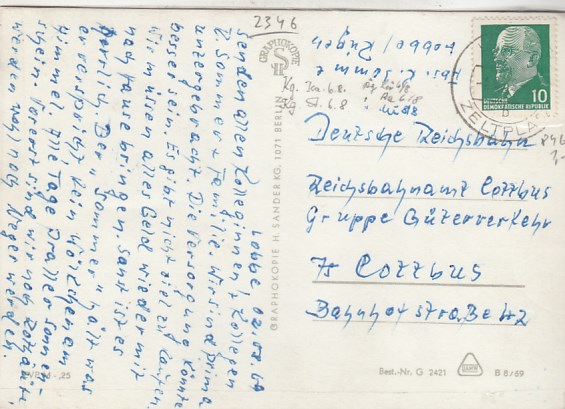 2346
Lobbe 02.08.69
Senden allen Kolleginnen/Kollegen
D. Sommer + Familie. Wir sind prima
untergebracht. Die Versorgung könnte
besser sein. Es gibt nicht viel zu kaufen.
Wir müssen alles Geld wieder mit
nach Hause bringen. Sonst ist es
herrlich. Der "Sommer" hält was
er verspricht. Kein Wölkchen am
Himmel. Alle Tage praller Sonnen-
schein. Vorerst sind wir noch Rothäute,
werden wohl noch Neger werden.
25
GRAPHOKOPIE
GRAPHOKOPIE H. SANDER KG. 1071 BERLIN
Lobbe/Rügen
DEUTSCHE
DEMOKRATISCHE REPUBLIK
10
ZELTPL
Deutsche Reichsbahn
Reichsbahnamt Cottbus
Gruppe Güterverkehr
75 Cottbus
Bahnhofstraße
Best.-Nr. G 2421
B 8/69